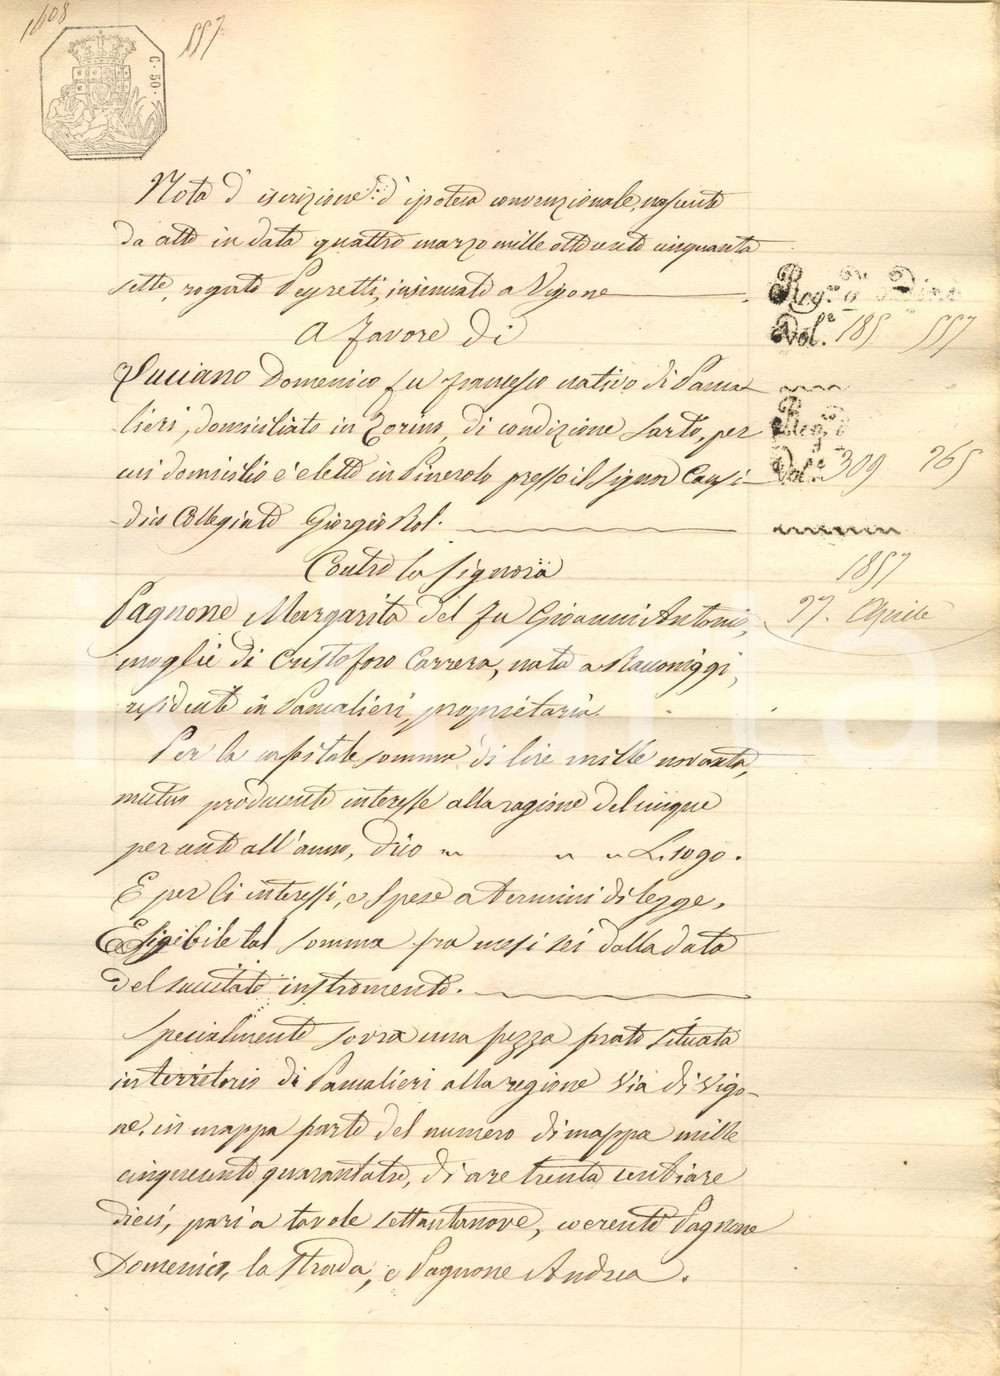 1608
557
C. 50.
Nota d' iscrizione d' ipoteca convenzionale, nascente
da atto in data quattro marzo mille ottocento cinquanta
sette, rogato Peyretti, insinuato a Vigone
A favore di
Luciano Domenico fu Francesco nativo di Panca-
lieri, domiciliato in Torino, di condizione sarto, per
cui domicilio è eletto in Pinerolo presso il Signor Causi-
dico Collegiato Giorgio Rol.
Contro la Signora
Pagnone Margarita del fu Gioanni Antonio,
moglie di Cristoforo Carrera, nata a Racconiggi,
residente in Pancalieri, proprietaria.
Per la capitale somma di lire mille novanta,
mutuo producente interesse alla ragione del cinque
per cento all'anno, dico L. 1090.
E per li interessi, e spese a termini di legge.
Esigibile tal somma fra mesi sei dalla data
del succitato instromento.
Specialmente sovra una pezza prato situata
in territorio di Pancalieri alla regione Via di Vigo-
ne, in mappa parte del numero di mappa mille
cinquecento quarantatre, di are trenta centiare
dieci, pari a tavole settantanove, coerenti Pagnone
Domenico, la strada, e Pagnone Andrea.
Reg.º d'ordine
Vol.e 185 557
Reg.º
Vol.e 309 265
1857
27. Aprile